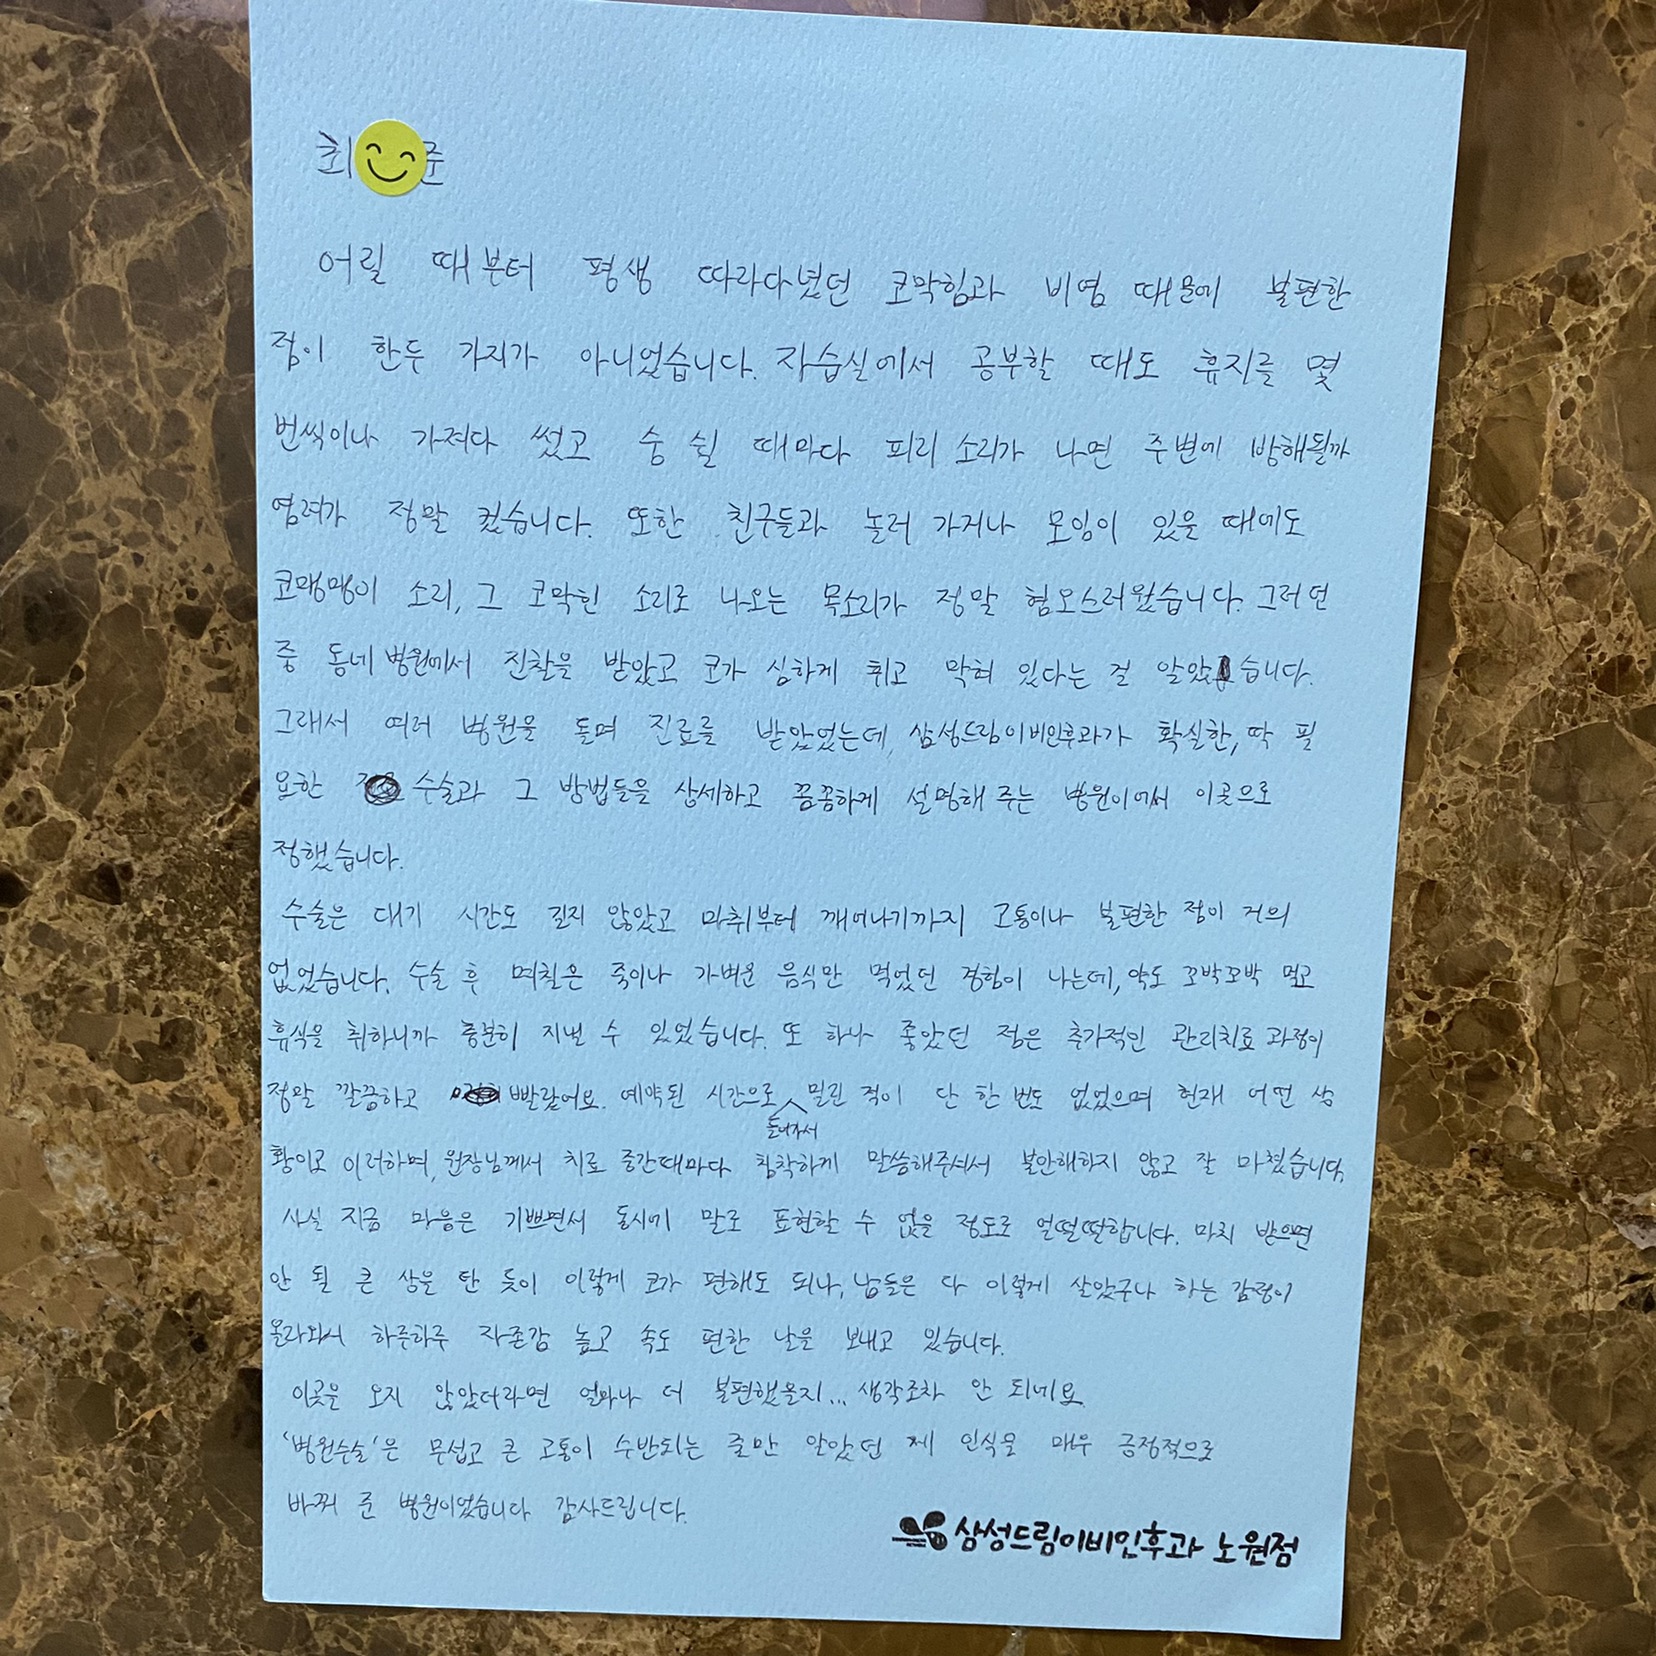 최 준
어릴 때부터 평생 따라다녔던 코막힘과 비염 때문에 불편한
점이 한두 가지가 아니었습니다. 자습실에서 공부할 때도 휴지를 몇
번씩이나 가져다 썼고 숨 쉴 때마다 피리 소리가 나면 주변에 방해될까
염려가 정말 컸습니다. 또한 친구들과 놀러 가거나 모임이 있을 때에도
코맹맹이 소리, 그 코막힌 소리로 나오는 목소리가 정말 혐오스러웠습니다. 그러던
중 동네 병원에서 진찰을 받았고 코가 심하게 휘고 막혀 있다는 걸 알았습니다.
그래서 여러 병원을 돌며 진료를 받았었는데, 삼성드림이비인후과가 확실한, 딱 필
요한 수술과 그 방법들을 상세하고 꼼꼼하게 설명해 주는 병원이어서 이곳으로
정했습니다.
수술은 대기 시간도 길지 않았고 마취부터 깨어나기까지 고통이나 불편한 점이 거의
없었습니다. 수술 후 며칠은 죽이나 가벼운 음식만 먹었던 경험이 나는데, 약도 꼬박꼬박 먹고
휴식을 취하니까 충분히 지낼 수 있었습니다. 또 하나 좋았던 점은 추가적인 관리치료 과정이
정말 깔끔하고 빨랐어요. 예약된 시간으로 밀린 적이 단 한 번도 없었으며 현재 어떤 상
들어가서
황이고 이러하며, 원장님께서 치료 중간때마다 침착하게 말씀해주셔서 불안해하지 않고 잘 마쳤습니다.
사실 지금 마음은 기쁘면서 동시에 말로 표현할 수 없을 정도로 얼떨떨합니다. 마치 받으면
안 될 큰 상을 탄 듯이 이렇게 코가 편해도 되나, 남들은 다 이렇게 살았구나 하는 감정이
올라와서 하루하루 자존감 높고 속도 편한 날을 보내고 있습니다.
이곳을 오지 않았더라면 얼마나 더 불편했을지... 생각조차 안 되네요
'병원수술'은 무섭고 큰 고통이 수반되는 줄만 알았던 제 인식을 매우 긍정적으로
바꿔 준 병원이었습니다 감사드립니다.
삼성드림이비인후과 노원점